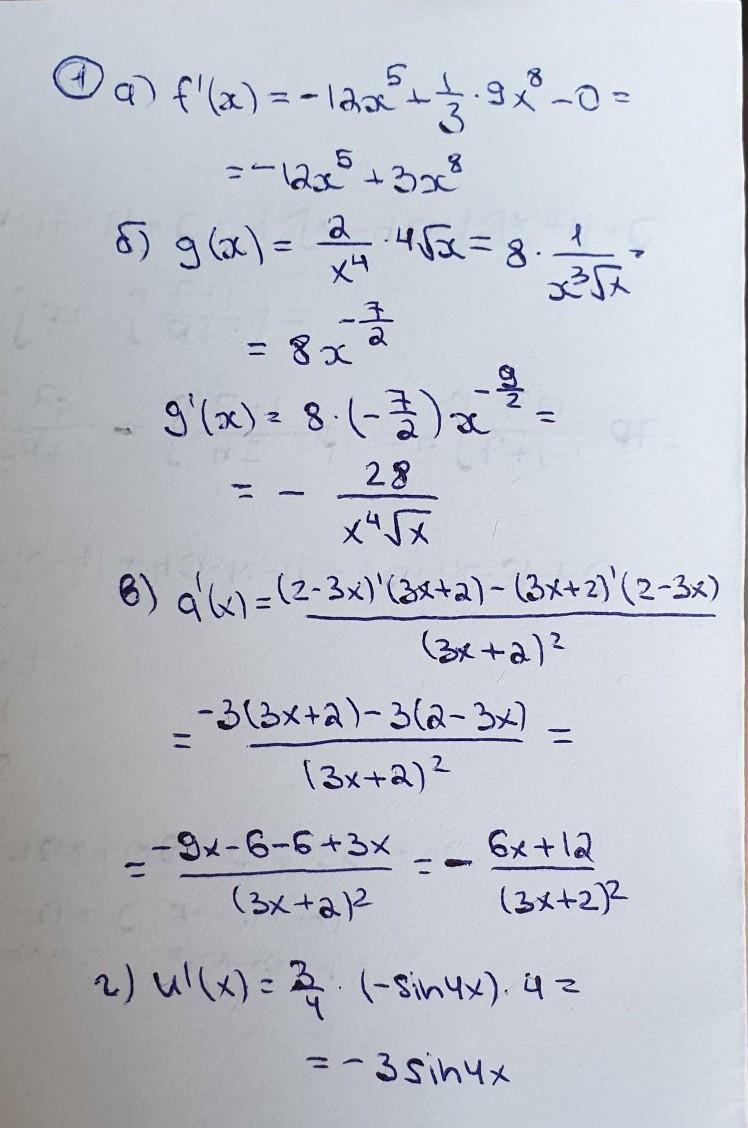 ① а) f'(x) = -12x⁵ + 1/3 · 9x⁸ - 0 =
= -12x⁵ + 3x⁸
б) g(x) = 2/x⁴ · 4√x = 8 · 1/(x³√x) =
= 8x^(-7/2)
g'(x) = 8 · (-7/2) x^(-9/2) =
= - 28/(x⁴√x)
в) a'(x) = ((2-3x)'(3x+2) - (3x+2)'(2-3x))/(3x+2)²
= (-3(3x+2) - 3(2-3x))/(3x+2)² =
= (-9x-6-6+3x)/(3x+2)² = - (6x+12)/(3x+2)²
г) u'(x) = 3/4 · (-sin4x) · 4 =
= -3sin4x